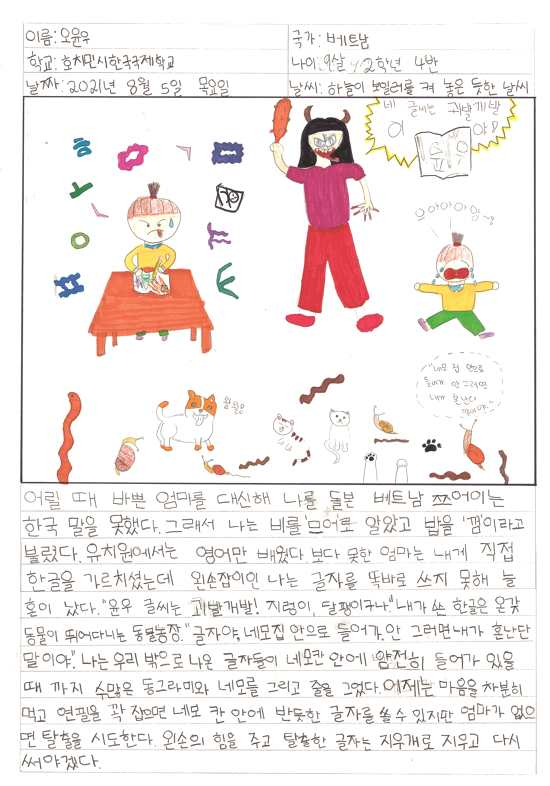 이름: 오윤우
국가: 베트남
학교: 호치민시한국국제학교
나이: 9살 2학년 4반
날짜: 2021년 8월 5일 목요일
날씨: 하늘이 보일러를 켜 놓은 듯한 날씨
네 글씨는 괴발개발
이
야!
으아아아앙~
월월
네모 집 안으로
들어가 안 그러면
내가 혼난다
말이야.
어릴 때 바쁜 엄마를 대신해 나를 돌본 베트남 쯔어이는
한국 말을 못했다. 그래서 나는 비를 '므어'로 알았고 밥을 '껌'이라고
불렀다. 유치원에서는 영어만 배웠다. 보다 못한 엄마는 내게 직접
한글을 가르치셨는데 왼손잡이인 나는 글자를 똑바로 쓰지 못해 늘
혼이 났다. "윤우 글씨는 괴발개발! 지렁이, 달팽이구나." 내가 쓴 한글은 온갖
동물이 뛰어다니는 동물농장. "글자야, 네모집 안으로 들어가, 안 그러면 내가 혼난단
말이야." 나는 우리 밖으로 나온 글자들이 네모칸 안에 얌전히 들어가 있을
때 까지 수많은 동그라미와 네모를 그리고 줄을 그었다. 이제는 마음을 차분히
먹고 연필을 꽉 잡으면 네모 칸 안에 반듯한 글자를 쓸 수 있지만 엄마가 없으
면 탈출을 시도한다. 왼손의 힘을 주고 탈출한 글자는 지우개로 지우고 다시
써야겠다.